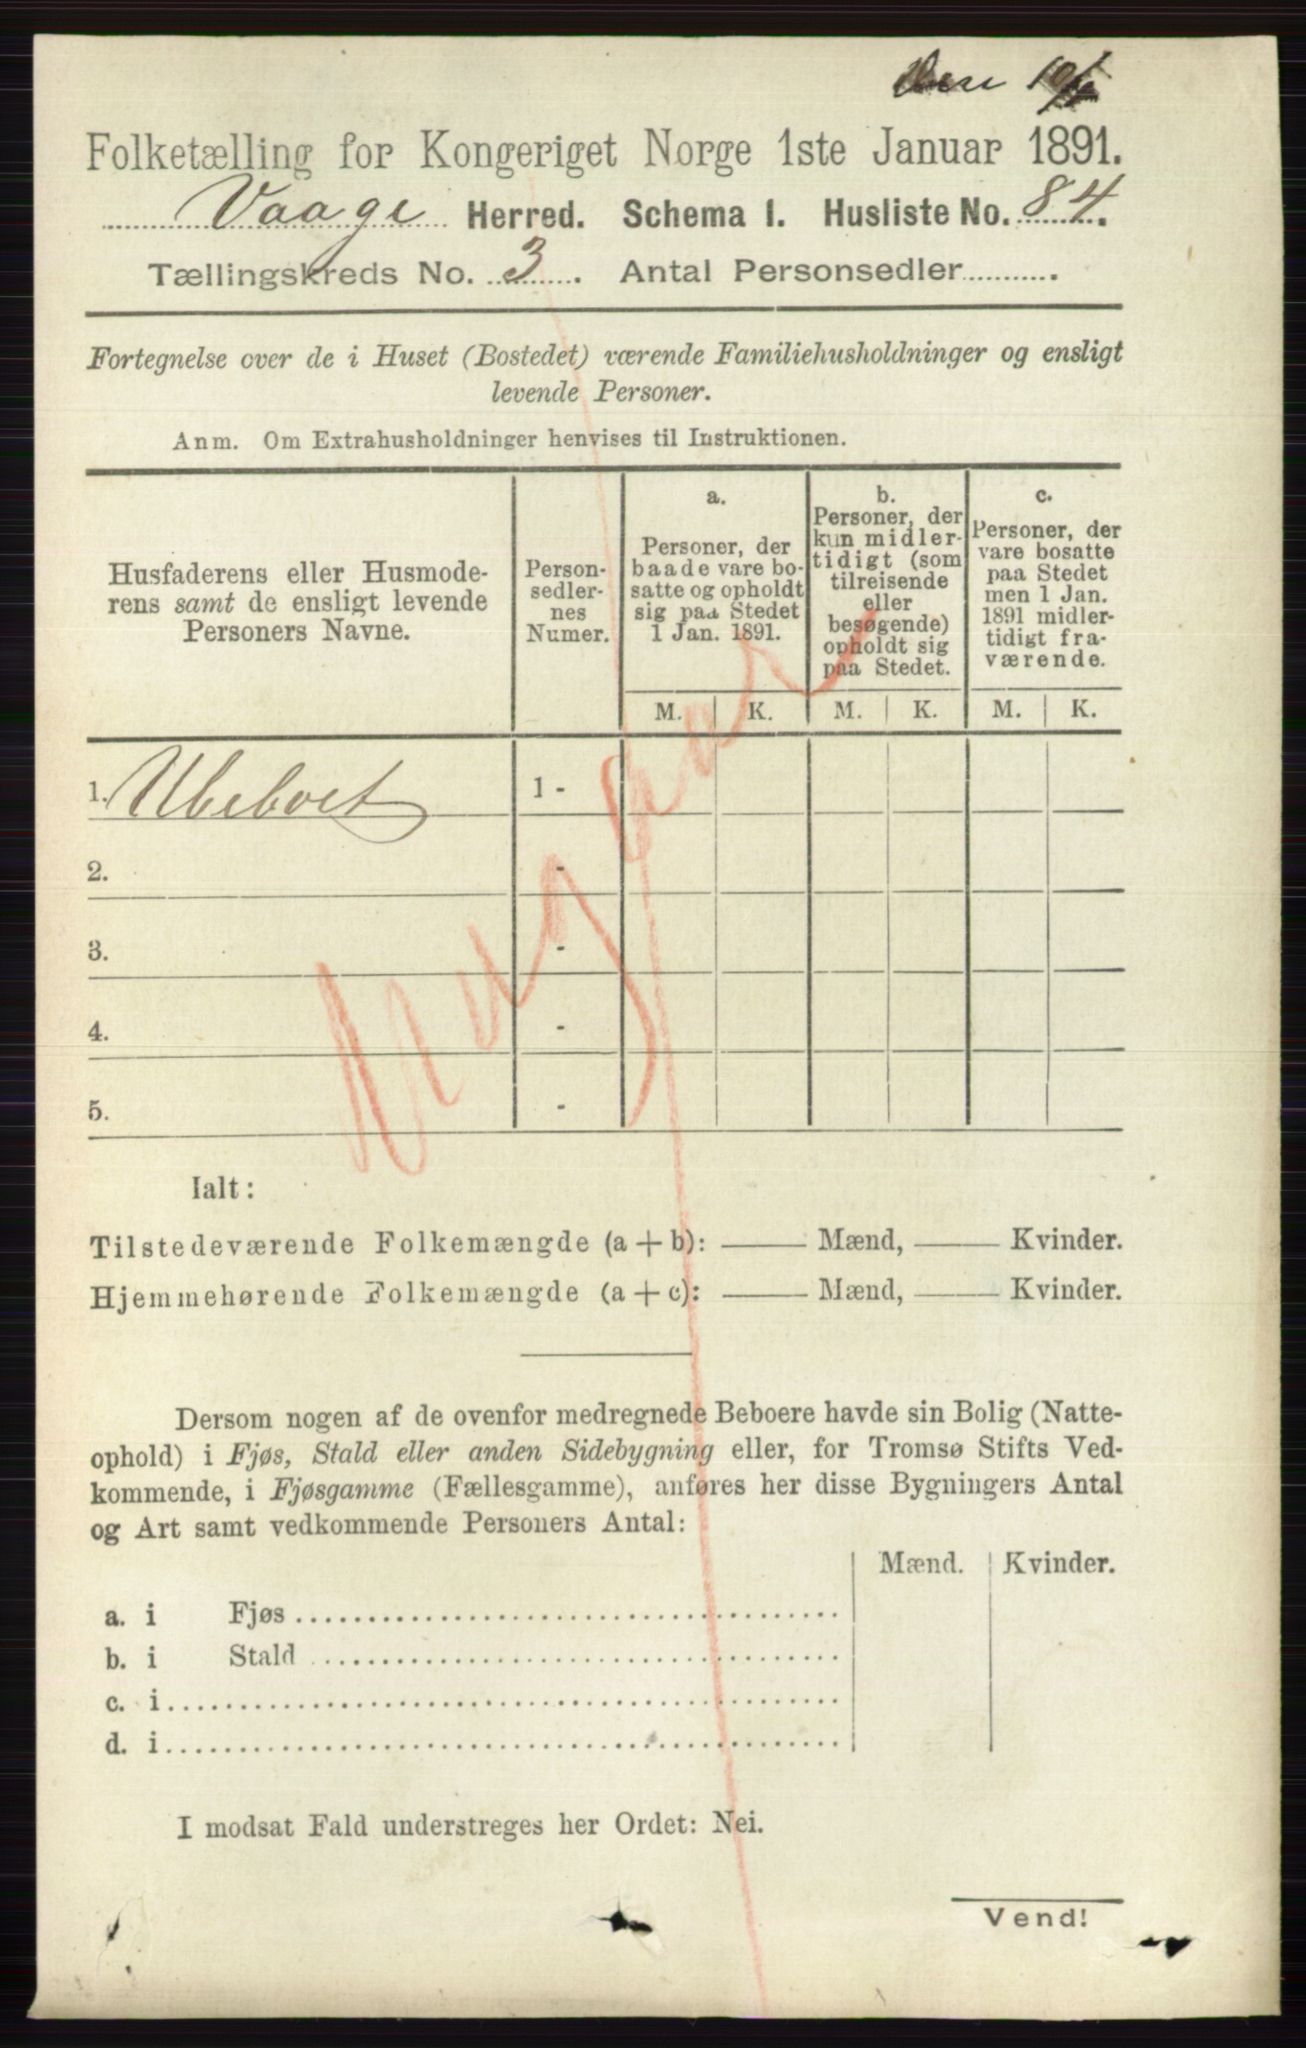 Folketælling for Kongeriget Norge 1ste Januar 1891.
Vaage Herred. Schema I. Husliste No. 84.
Tællingskreds No. 3. Antal Personsedler ............
Fortegnelse over de i Huset (Bostedet) værende Familiehusholdninger og ensligt
levende Personer.
Anm. Om Extrahusholdninger henvises til Instruktionen.
Husfaderens eller Husmode-
rens samt de ensligt levende
Personers Navne.
Person-
sedler-
nes
Numer.
a.
Personer, der
baade vare bo-
satte og opholdt
sig paa Stedet
1 Jan. 1891.
b.
Personer, der
kun midler-
tidigt (som
tilreisende
eller
besøgende)
opholdt sig
paa Stedet.
c.
Personer, der
vare bosatte
paa Stedet
men 1 Jan.
1891 midler-
tidigt fra-
værende.
M. K. M. K. M. K.
1. Ubeboet 1 -
2. -
3. -
4. -
5. -
Ialt:
Tilstedeværende Folkemængde (a + b): —— Mænd, —— Kvinder.
Hjemmehørende Folkemængde (a + c): —— Mænd, —— Kvinder.
Dersom nogen af de ovenfor medregnede Beboere havde sin Bolig (Natte-
ophold) i Fjøs, Stald eller anden Sidebygning eller, for Tromsø Stifts Ved-
kommende, i Fjøsgamme (Fællesgamme), anføres her disse Bygningers Antal
og Art samt vedkommende Personers Antal:
Mænd. Kvinder.
a. i Fjøs
b. i Stald
c. i
d. i
I modsat Fald understreges her Ordet: Nei.
Vend!